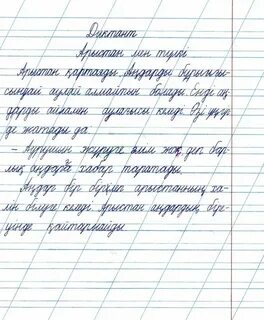 Диктант
Арыстан мен түлкі
Арыстан қартаяды. Аңдарды бұрынғы-
сындай аулай алмайтын болады. Енді аң-
дарды айламен аулағысы келеді. Өзі үңгір-
де жатады да:
– Ауырдым, жүруге әлім жоқ, деп бар-
лық аңдарға хабар таратады.
Аңдар бір бірлеп арыстанның ха-
лін білуге келеді. Арыстан аңдардың бір-
еуінде қайтармайды.